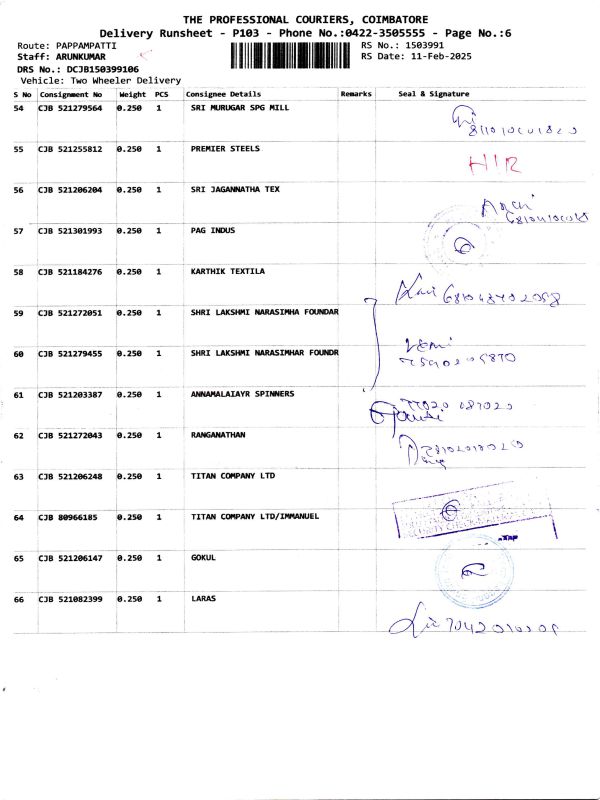 THE PROFESSIONAL COURIERS, COIMBATORE
Delivery Runsheet - P103 - Phone No.:0422-3505555 - Page No.:6
Route: PAPPAMPATTI RS No.: 1503991
Staff: ARUNKUMAR RS Date: 11-Feb-2025
DRS No.: DCJB150399106
Vehicle: Two Wheeler Delivery
S No Consignment No Weight PCS Consignee Details Remarks Seal & Signature
54 CJB 521279564 0.250 1 SRI MURUGAR SPG MILL
55 CJB 521255812 0.250 1 PREMIER STEELS
56 CJB 521206204 0.250 1 SRI JAGANNATHA TEX
57 CJB 521301993 0.250 1 PAG INDUS
58 CJB 521184276 0.250 1 KARTHIK TEXTILA
59 CJB 521272051 0.250 1 SHRI LAKSHMI NARASIMHA FOUNDAR
60 CJB 521279455 0.250 1 SHRI LAKSHMI NARASIMHAR FOUNDR
61 CJB 521203387 0.250 1 ANNAMALAIAYR SPINNERS
62 CJB 521272043 0.250 1 RANGANATHAN
63 CJB 521206248 0.250 1 TITAN COMPANY LTD
64 CJB 80966185 0.250 1 TITAN COMPANY LTD/IMMANUEL
65 CJB 521206147 0.250 1 GOKUL
66 CJB 521082399 0.250 1 LARAS